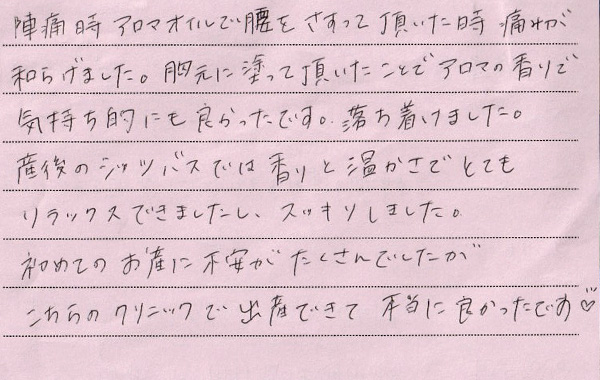 陣痛時アロマオイルで腰をさすって頂いた時痛みが
和らげました。胸元に塗って頂いたことでアロマの香りで
気持ち的にも良らったです。落ち着けました。
産後のシッツバスでは香りと温かさでとても
リラックスできましたし、スッキリしました。
初めてのお産に不安がたくさんでしたが
こちらのクリニックで出産できて本当に良かったです♡